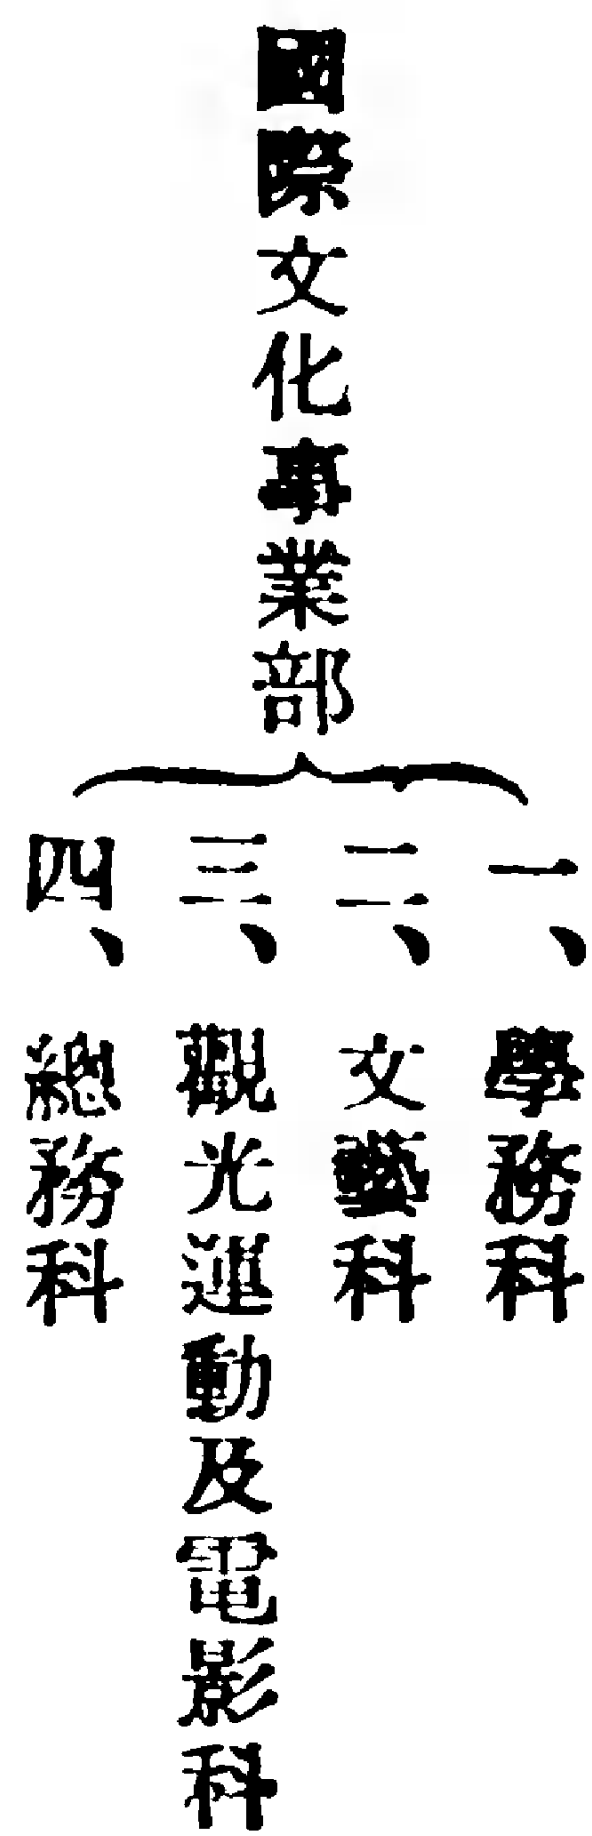 國際文化事業部
一、學務科
二、文藝科
三、觀光運動及電影科
四、總務科